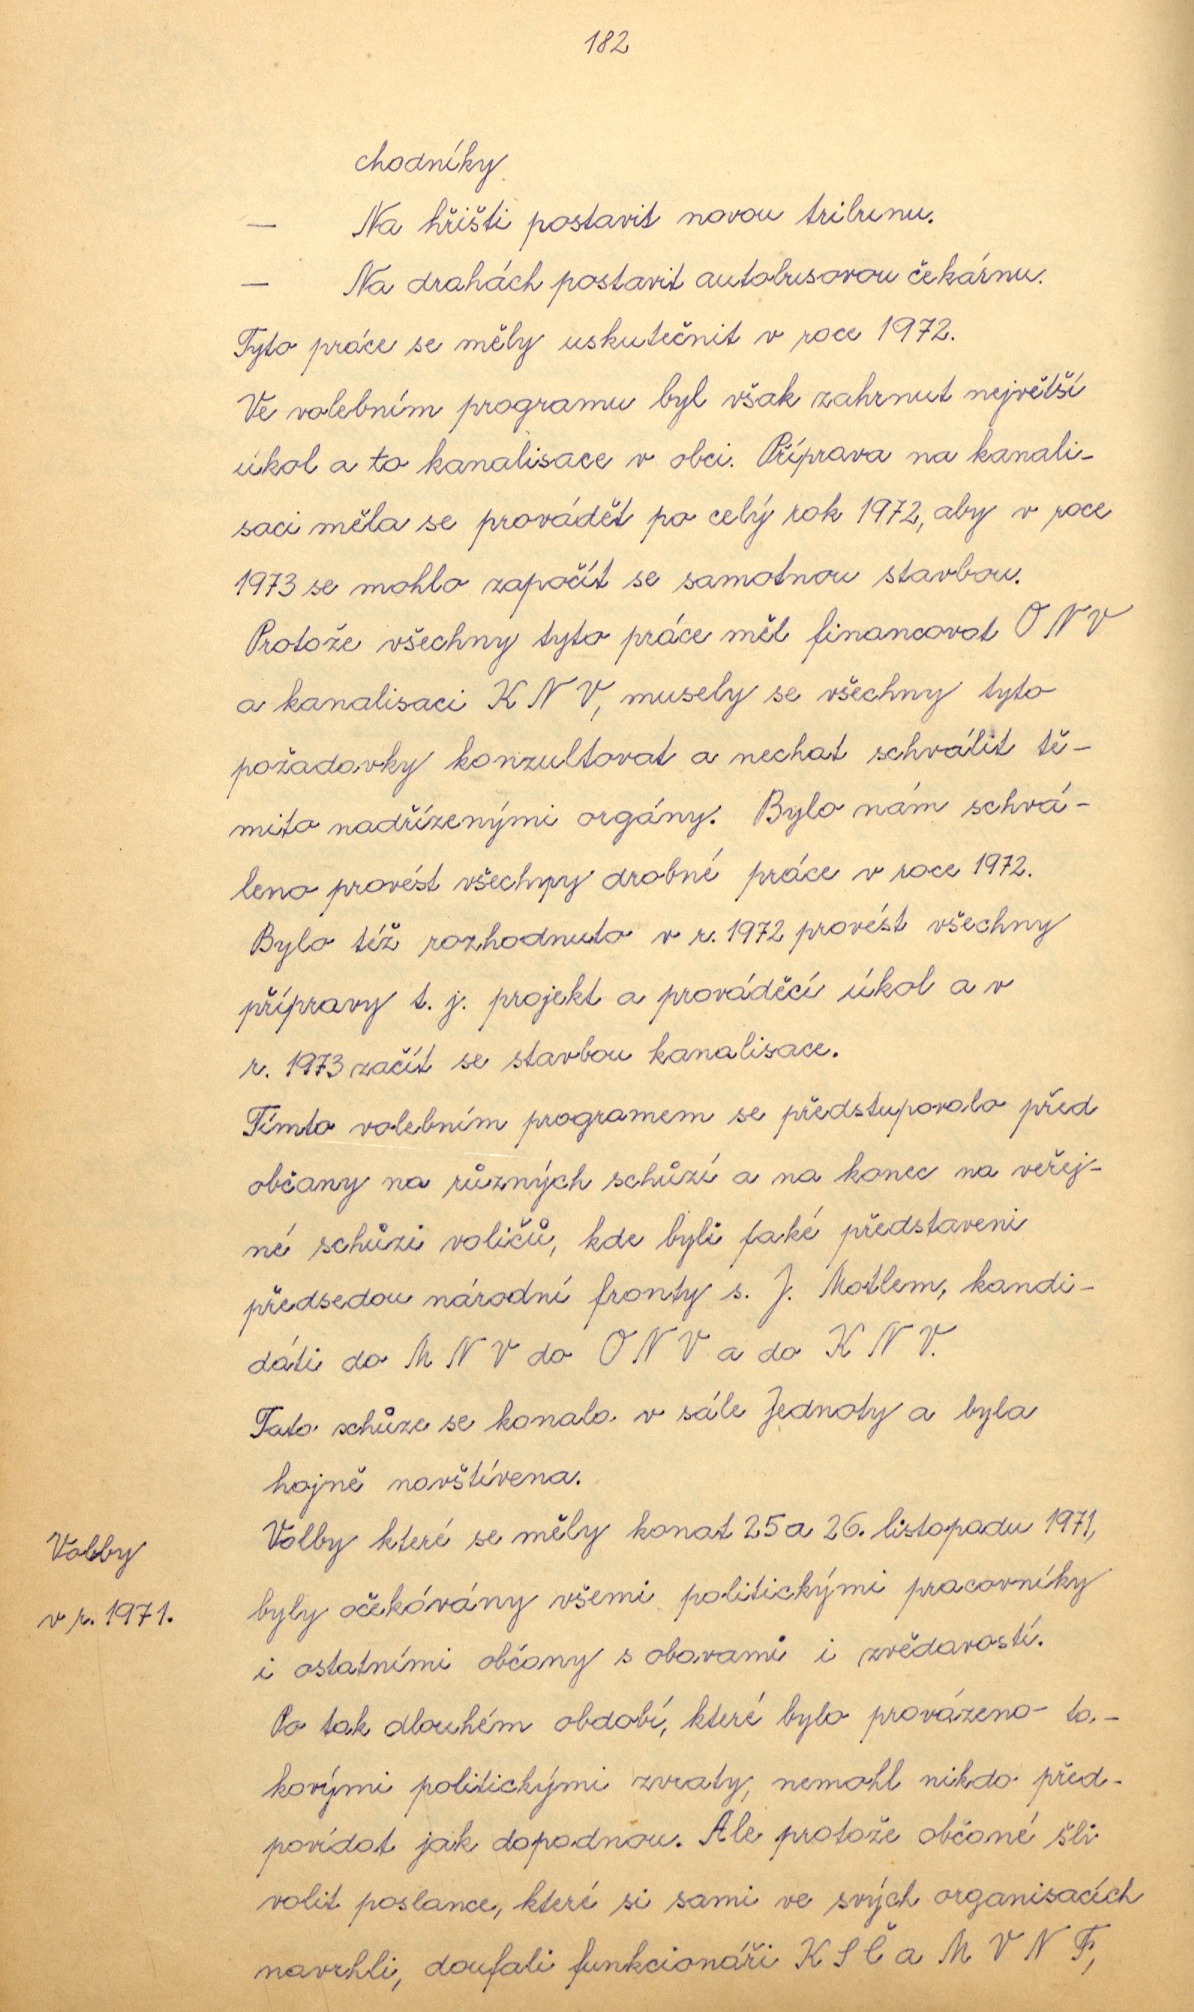 182
chodníky
— Na hřišti postavit novou tribunu.
— Na drahách postavit autobusovou čekárnu.
Tyto práce se měly uskutečnit v roce 1972.
Ve volebním programu byl však zahrnut největší
úkol a to kanalisace v obci. Příprava na kanali-
saci měla se provádět po celý rok 1972, aby v roce
1973 se mohlo započít se samotnou stavbou.
Protože všechny tyto práce měl financovat O N V
a kanalisaci K N V, musely se všechny tyto
požadavky konzultovat a nechat schválit tě-
mito nadřízenými orgány. Bylo nám schvá-
leno provést všechny drobné práce v roce 1972.
Bylo též rozhodnuto v r. 1972 provést všechny
přípravy t. j. projekt a prováděcí úkol a v
r. 1973 začít se stavbou kanalisace.
Tímto volebním programem se předstupovalo před
občany na různých schůzí a na konec na veřej-
né schůzi voličů, kde byli také představeni
předsedou národní fronty s. J. Motlem, kandi-
dáti do M N V do O N V a do K N V.
Tato schůze se konala v sále Jednoty a byla
hojně navštívena.
Volby
v r. 1971.
Volby které se měly konat 25 a 26. listopadu 1971,
byly očekávány všemi politickými pracovníky
i ostatními občany s obavami i zvědavostí.
Po tak dlouhém období, které bylo provázeno ta-
kovými politickými zvraty, nemohl nikdo před-
povídat jak dopadnou. Ale protože občané šli
volit poslance, které si sami ve svých organisacích
navrhli, doufali funkcionáři K S Č a M V N F,